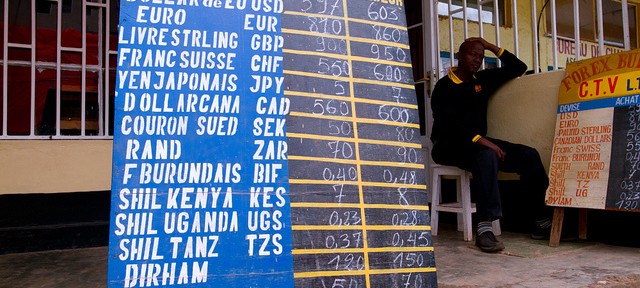 DOLLAR de EU USD 597 603
EURO EUR 860
LIVRESTRLING GBP 960
FRANC SUISSE CHF 550 600
YEN JAPONAIS JPY 5 7
DOLLARCANA CAD 560 600
COURON SUED SEK 50 80
RAND ZAR 70 90
F BURUNDAIS BIF 0,40 0,48
SHIL KENYA KES 7 8
SHIL UGANDA UGS 0,23 0,28
SHIL TANZ TZS 0,37 0,45
DIRHAM 120 150
50 70
BUREAU DE
FOREX BU
C.T.V LT
DEVISE ACHAT
USD
EURO
PAUND STERLING
CANADIAN DOLLARS
Franc SWISS
Franc BURUNDI
RAND
KENYA
TZ
UG